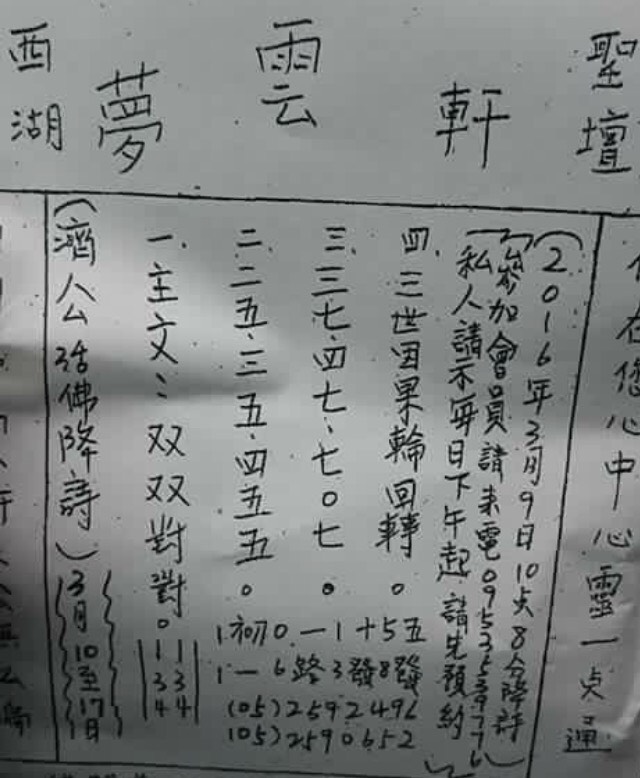 西湖 夢雲軒 聖壇
(濟公活佛降詩)
3月10至17日
一.主文:双双對對。
11
33
44
二.二五.三五.四五五。
三.三七.四七.七0七。
四.三世因果輪回轉。
1初0一1十5五
1一6路3發8發
(05)2592496
(05)2590652
私人請示每日下午起請先預約
參加會員請來電
(2016年3月9日10点8分降詩)
在您心中心靈一点通